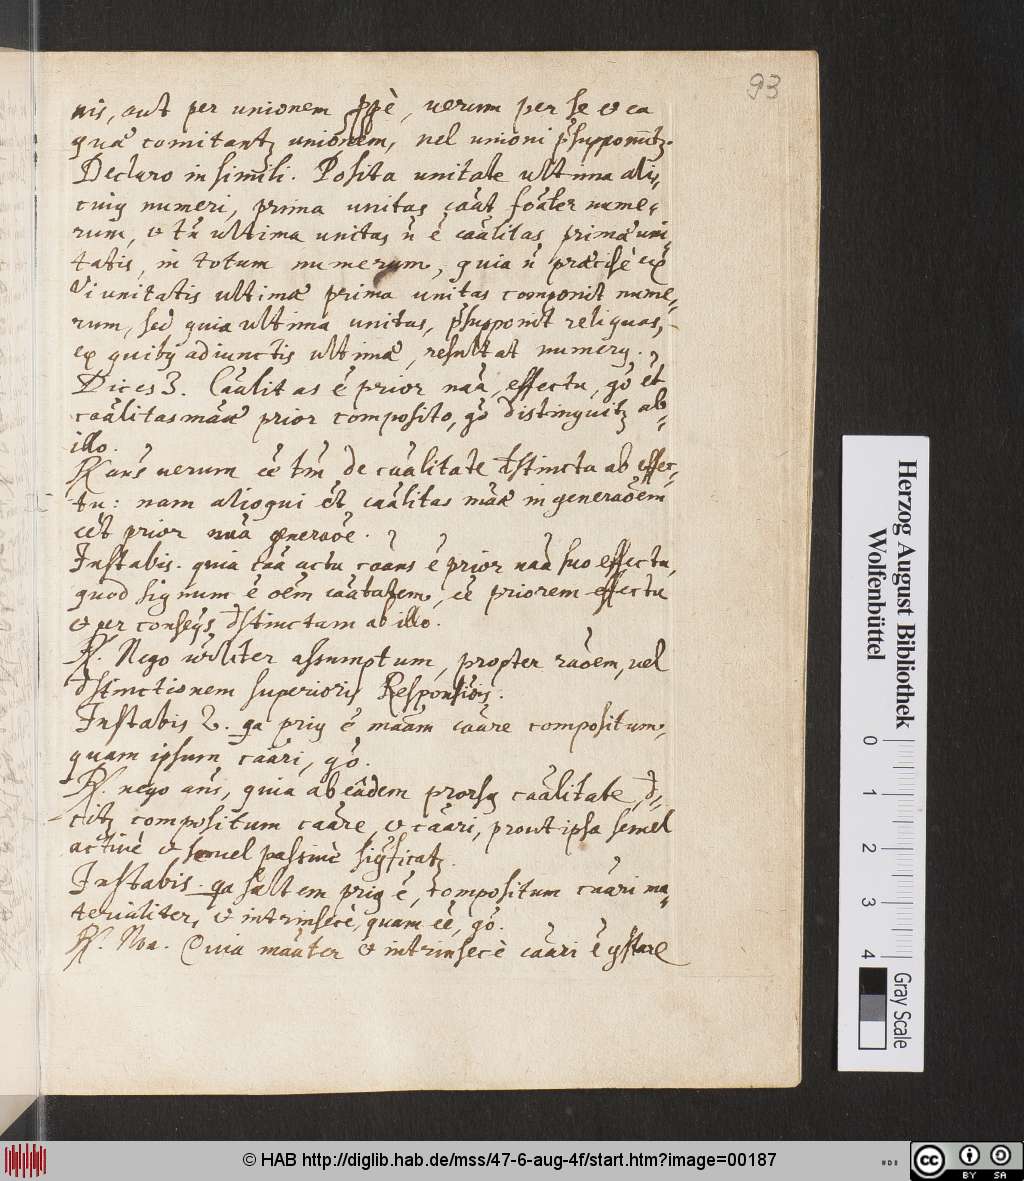 93
nis, aut per unionem ppè, uerum per se & ea
quæ comitantz unionem, uel unioni p̃supponũtz.
Declaro in simili. Posita unitate ultima ali,
cuiq numeri, prima unitas cãat fõater nume,
rum, & tñ ultima unitas ñ ẽ cãalitas primæ uni
tatis, in totum numerum, quia ñ præcisè ex
ui unitatis ultimæ prima unitas componit nume,
rum, sed quia ultima unitas, p̃supponit reliquas,
ex quibq adiunctis ultimæ, resultat numerq.
Dices 3. Cãalitas ẽ prior nãa effectu, gõ et
cãalitas mãæ prior composito, gõ distinguitz ab
illo.
R̃ ans uerum eẽ tm̃ de cãalitate dstincta ab effec,
tu: nam alioqui et cãalitas mãæ in generaõem
eẽt prior nãa generaõe.
Instabis. quia cãa actu cãans ẽ prior nãa suo effectu,
quod signum ẽ oẽm cãalitatem, eẽ priorem effectu
& per conseqs dstinctam ab illo.
R̃. Nego uñliter assumptum, propter rãoem, uel
dstinctionem superioris Responsiõis.
Instabis 2. qa priq ẽ mãam cãare compositum,
quam ipsum cãari, gõ.
R̃. nego ans, quia ab eâdem prorsq cãalitate, d,
citz compositum cãare, & cãari, prout ipsa semel
actiuè & semel passiuè significatz.
Instabis. qa saltem priq ẽ, compositum cãari ma,
terialiter, & intrinsecè, quam eẽ, gõ.
R̃. Noa. Quia mãater & intrinsecè cãari ẽ gstare
Herzog August Bibliothek
Wolfenbüttel
0 1 2 3 4
Gray Scale
© HAB http://diglib.hab.de/mss/47-6-aug-4f/start.htm?image=00187
cc BY SA